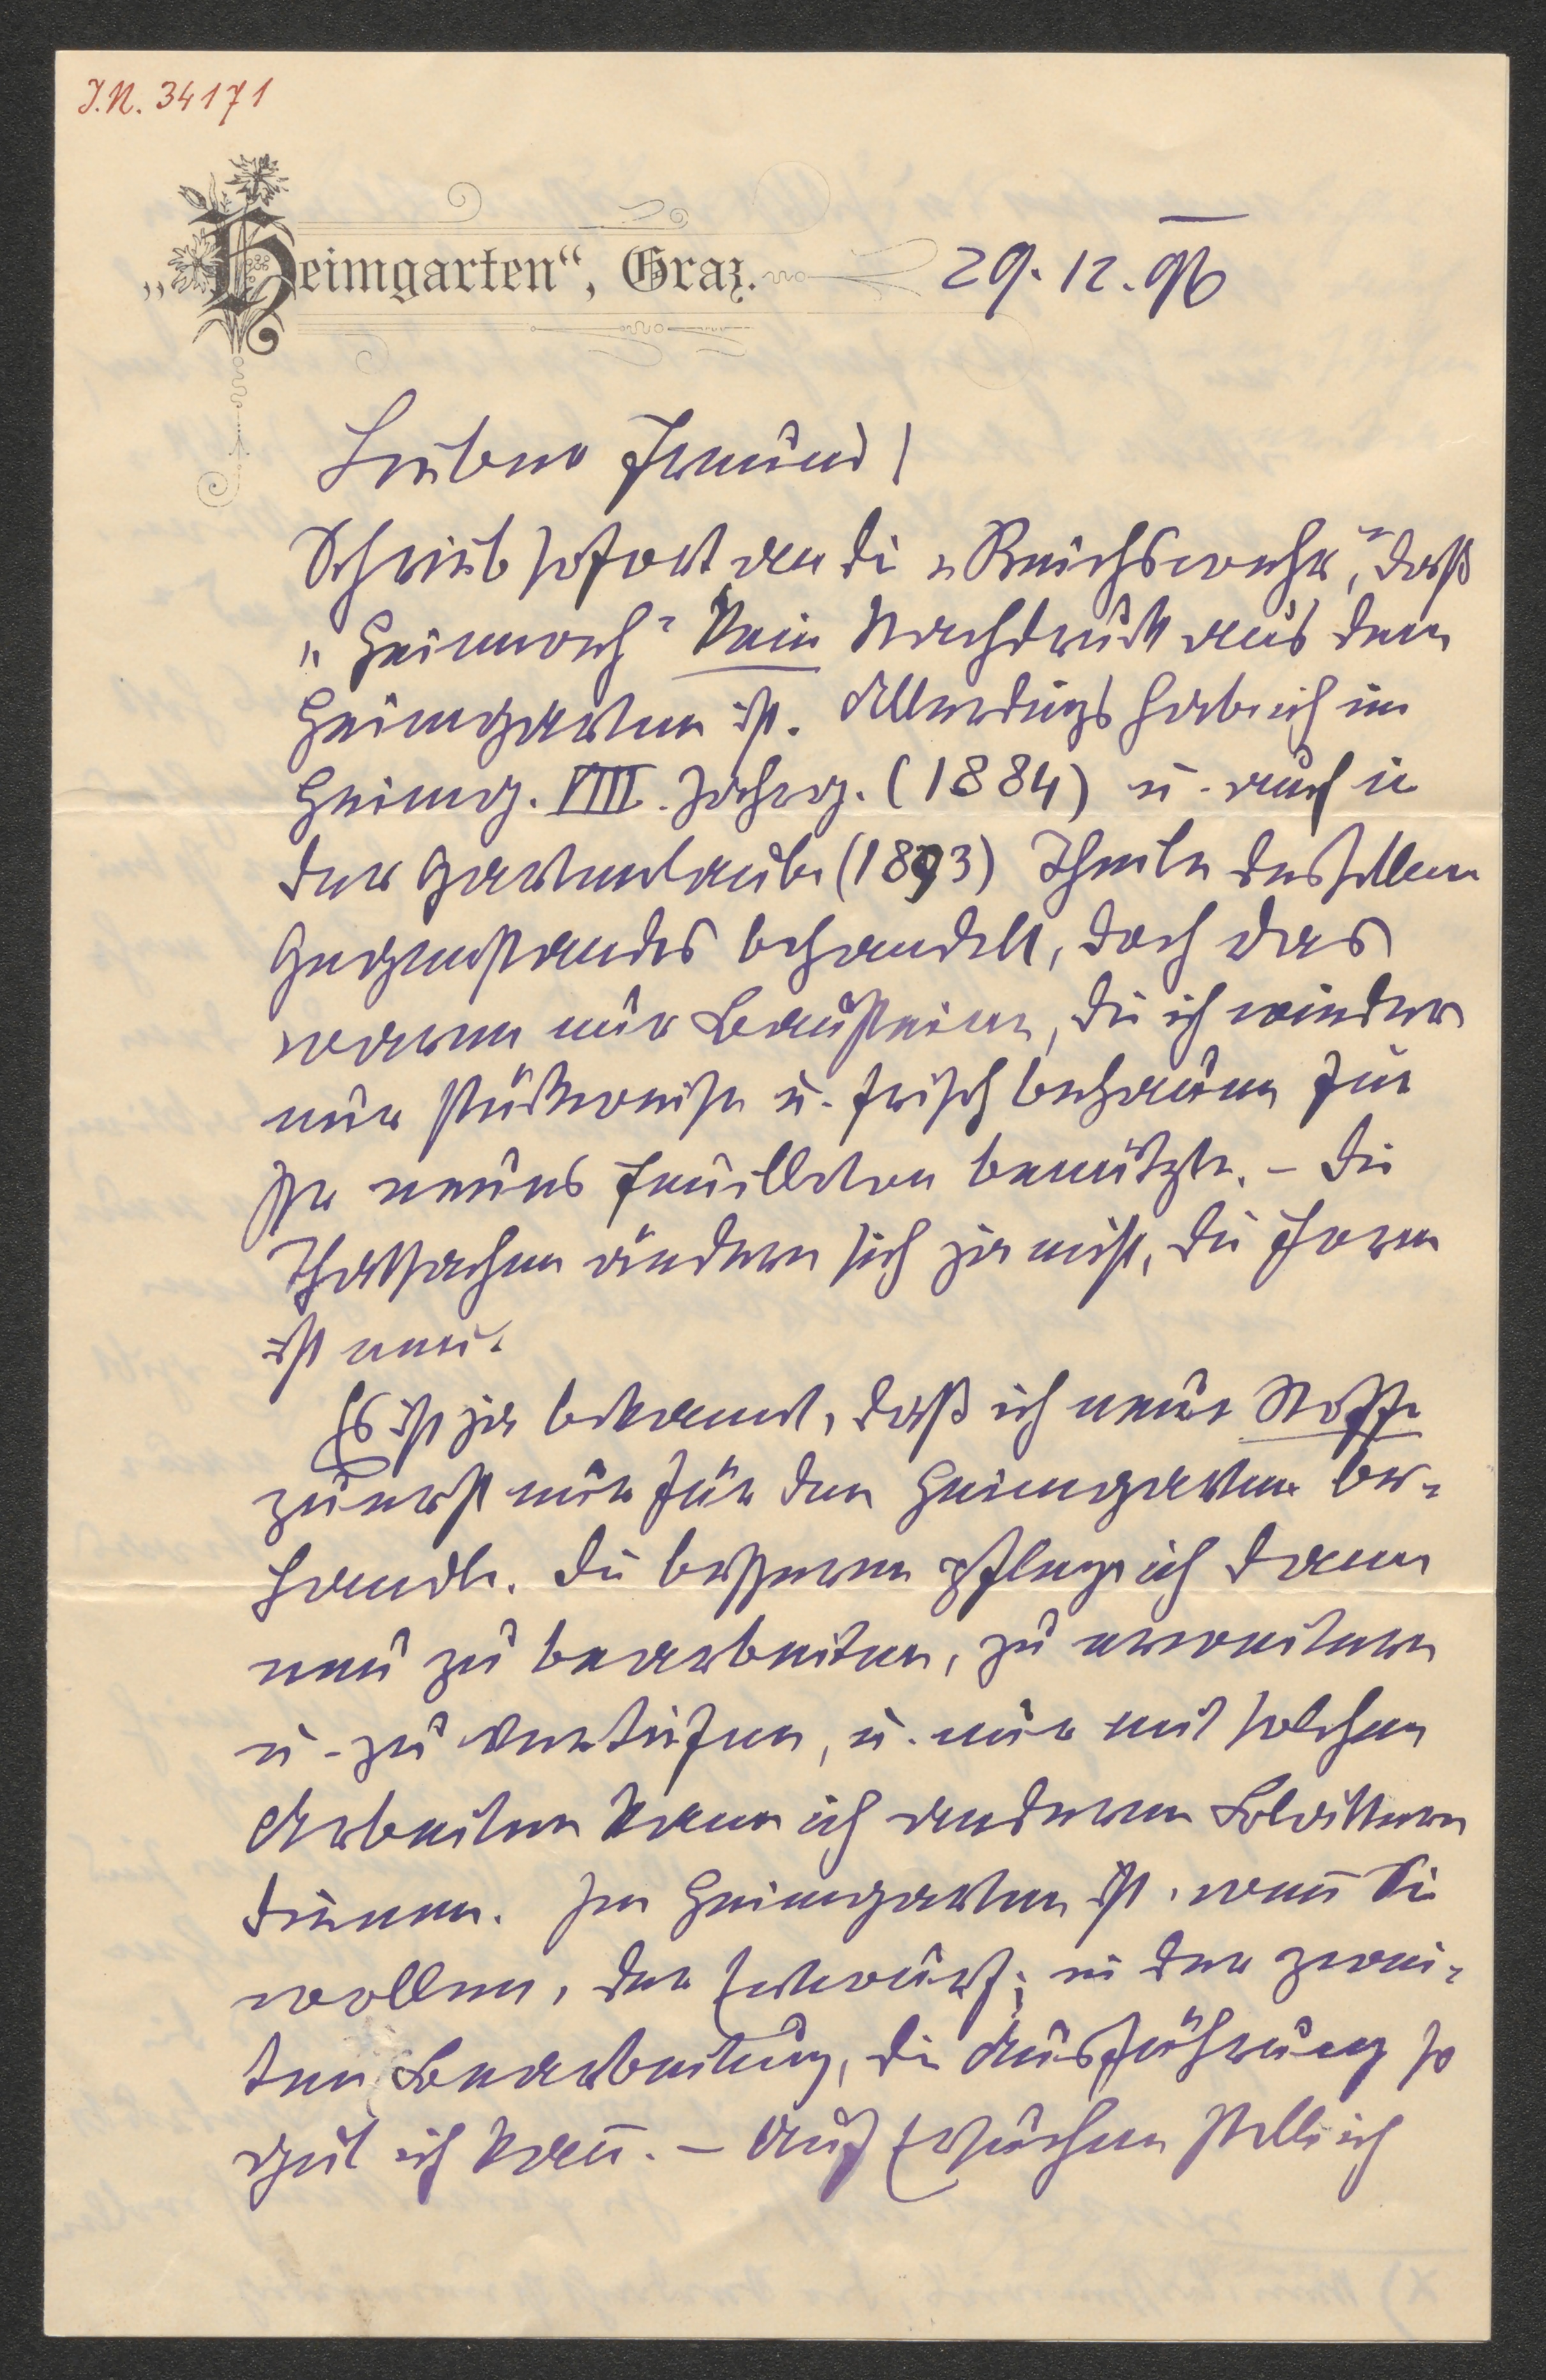 J.N. 34171
„Heimgarten“, Graz.
29. 12. 96
Lieber Freund!
Schrieb sofort an die „Reichswehr“, daß
„Heimweh“ kein Nachdruck aus dem
Heimgarten ist. Allerdings habe ich im
Heimg. VIII. Jahrg. (1884) u. auch in
der Gartenlaube (1893) Theile desselben
Gegenstandes behandelt, doch das
waren nur Bausteine, die ich wieder
nur stückweise u. frisch behauen für
neues Feuilleton benützte. – Die
Thatsachen ändern sich ja nicht, die Form
ist neu.
Es ist ja bekannt, daß ich neue Stoffe
zuerst nur für den Heimgarten be-
handle. Die besseren pflege ich dann
neu zu bearbeiten, zu erweitern
u. zu vertiefen, u. nur mit solchen
Arbeiten kann ich anderen Blättern
dienen. Im Heimgarten ist, wenn Sie
wollen, der Entwurf; in der zwei-
ten Bearbeitung, die Ausführung so
gut ich kann. – Auf Ersuchen stelle ich